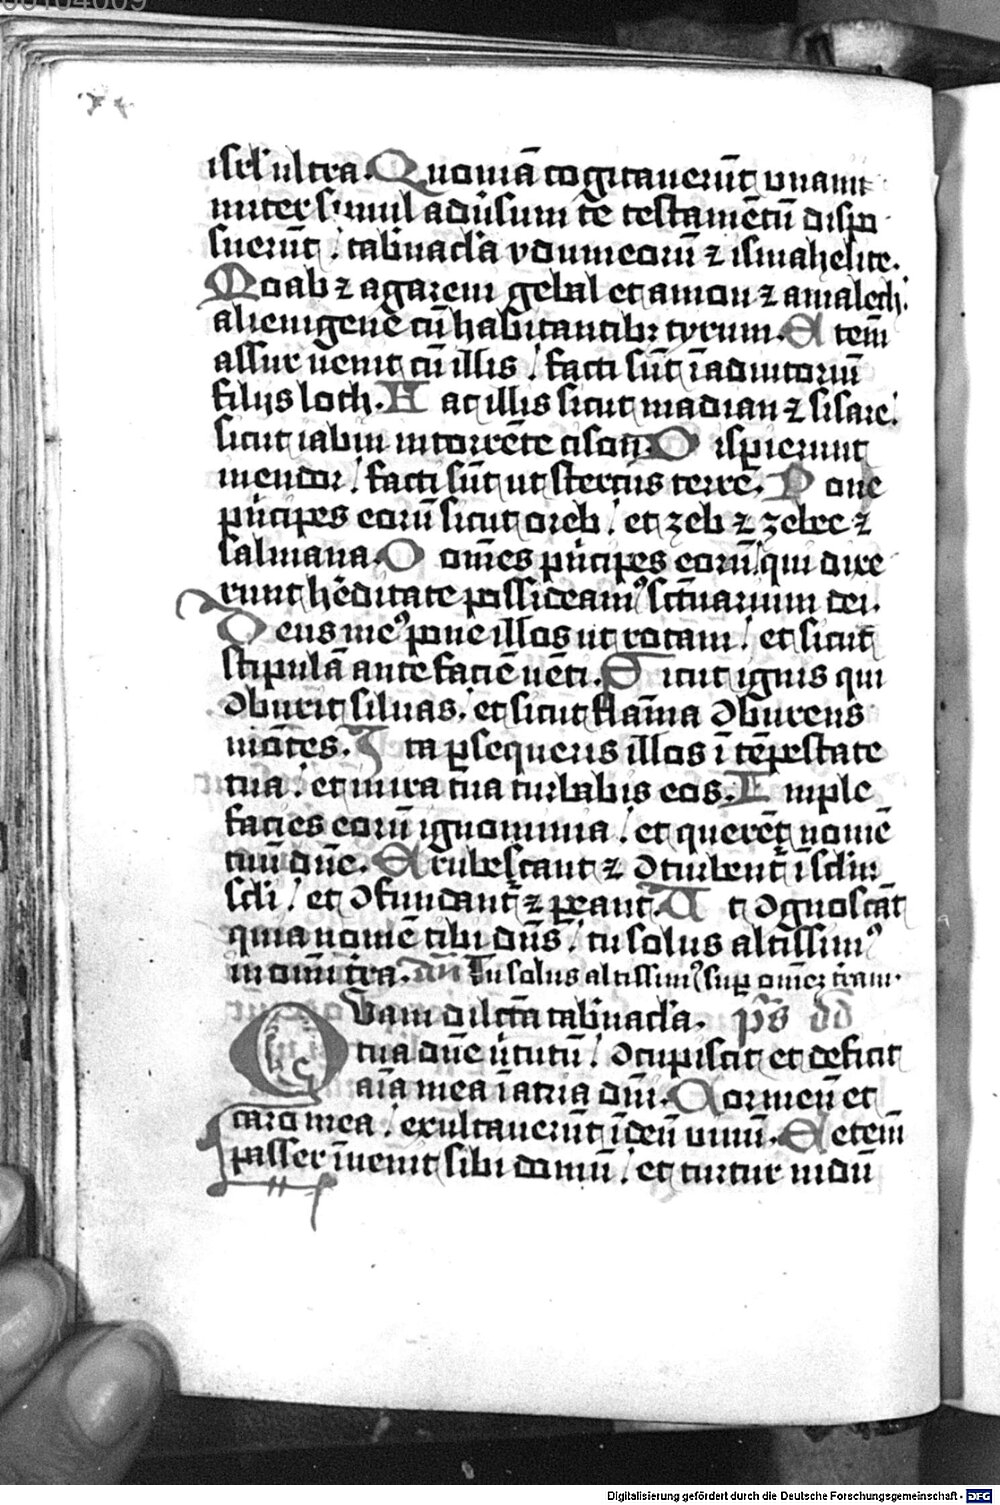 isrl' ultra. Quoniā cogitauerūt unani
miter simul adūsum te testamētū dispo
suerūt / tab'nacl'a ydumeorū ⁊ ismahelite.
Moab ⁊ agareni gebal et amon ⁊ amalech /
alienigene cū habitantibꝫ tyrum. Etem̄
assur uenit cū illis / facti sūt ī adiutoriū
filiis loth. Hac illis sicut madian ⁊ sisare /
sicut iabin in torrēte cison. Disperierunt
inendor / facti sūt ut stercus terre. Pone
p'ncipes eorū sicut oreb / et zeb ⁊ zebee ⁊
salmana. Om̄es p'ncipes eorū / qui dixe
runt h'editate possideamꝰ sc̄tuarium dei.
Deus meꝰ pone illos ut rotam / et sicut
stipulā ante faciē uēti. Sicut ignis qui
ꝯburit siluas / et sicut flām̄a ꝯburens
mōtes. Ita ꝑsequeris illos ī tēpestate
tua / et in ira tua turbabis eos. Imple
facies eorū ignominia / et querēt nomē
tuū dn̄e. Erubescant ⁊ ꝯturbent̄ ī sclm̄
scl'i / et ꝯfundant̄ ⁊ ꝑeant. Et ꝯgnoscāt
quia nomē tibi dn̄s / tu solus altissimꝰ
in om̄i t'ra. an̄ Tu solus altissimꝰ suꝑ omēꝫ t'ram.
Quam dilc̄ta tab'nacl'a. p̄s dd̄
tua dn̄e u'tutū / ꝯcupiscit et deficit
aīa mea ī atria dn̄i. Cor meū et
caro mea / exultauerūt ī deū uiuū. Etem̄
passer īuenit sibi domū / et turtur nidū
Digitalisierung gefördert durch die Deutsche Forschungsgemeinschaft - DFG